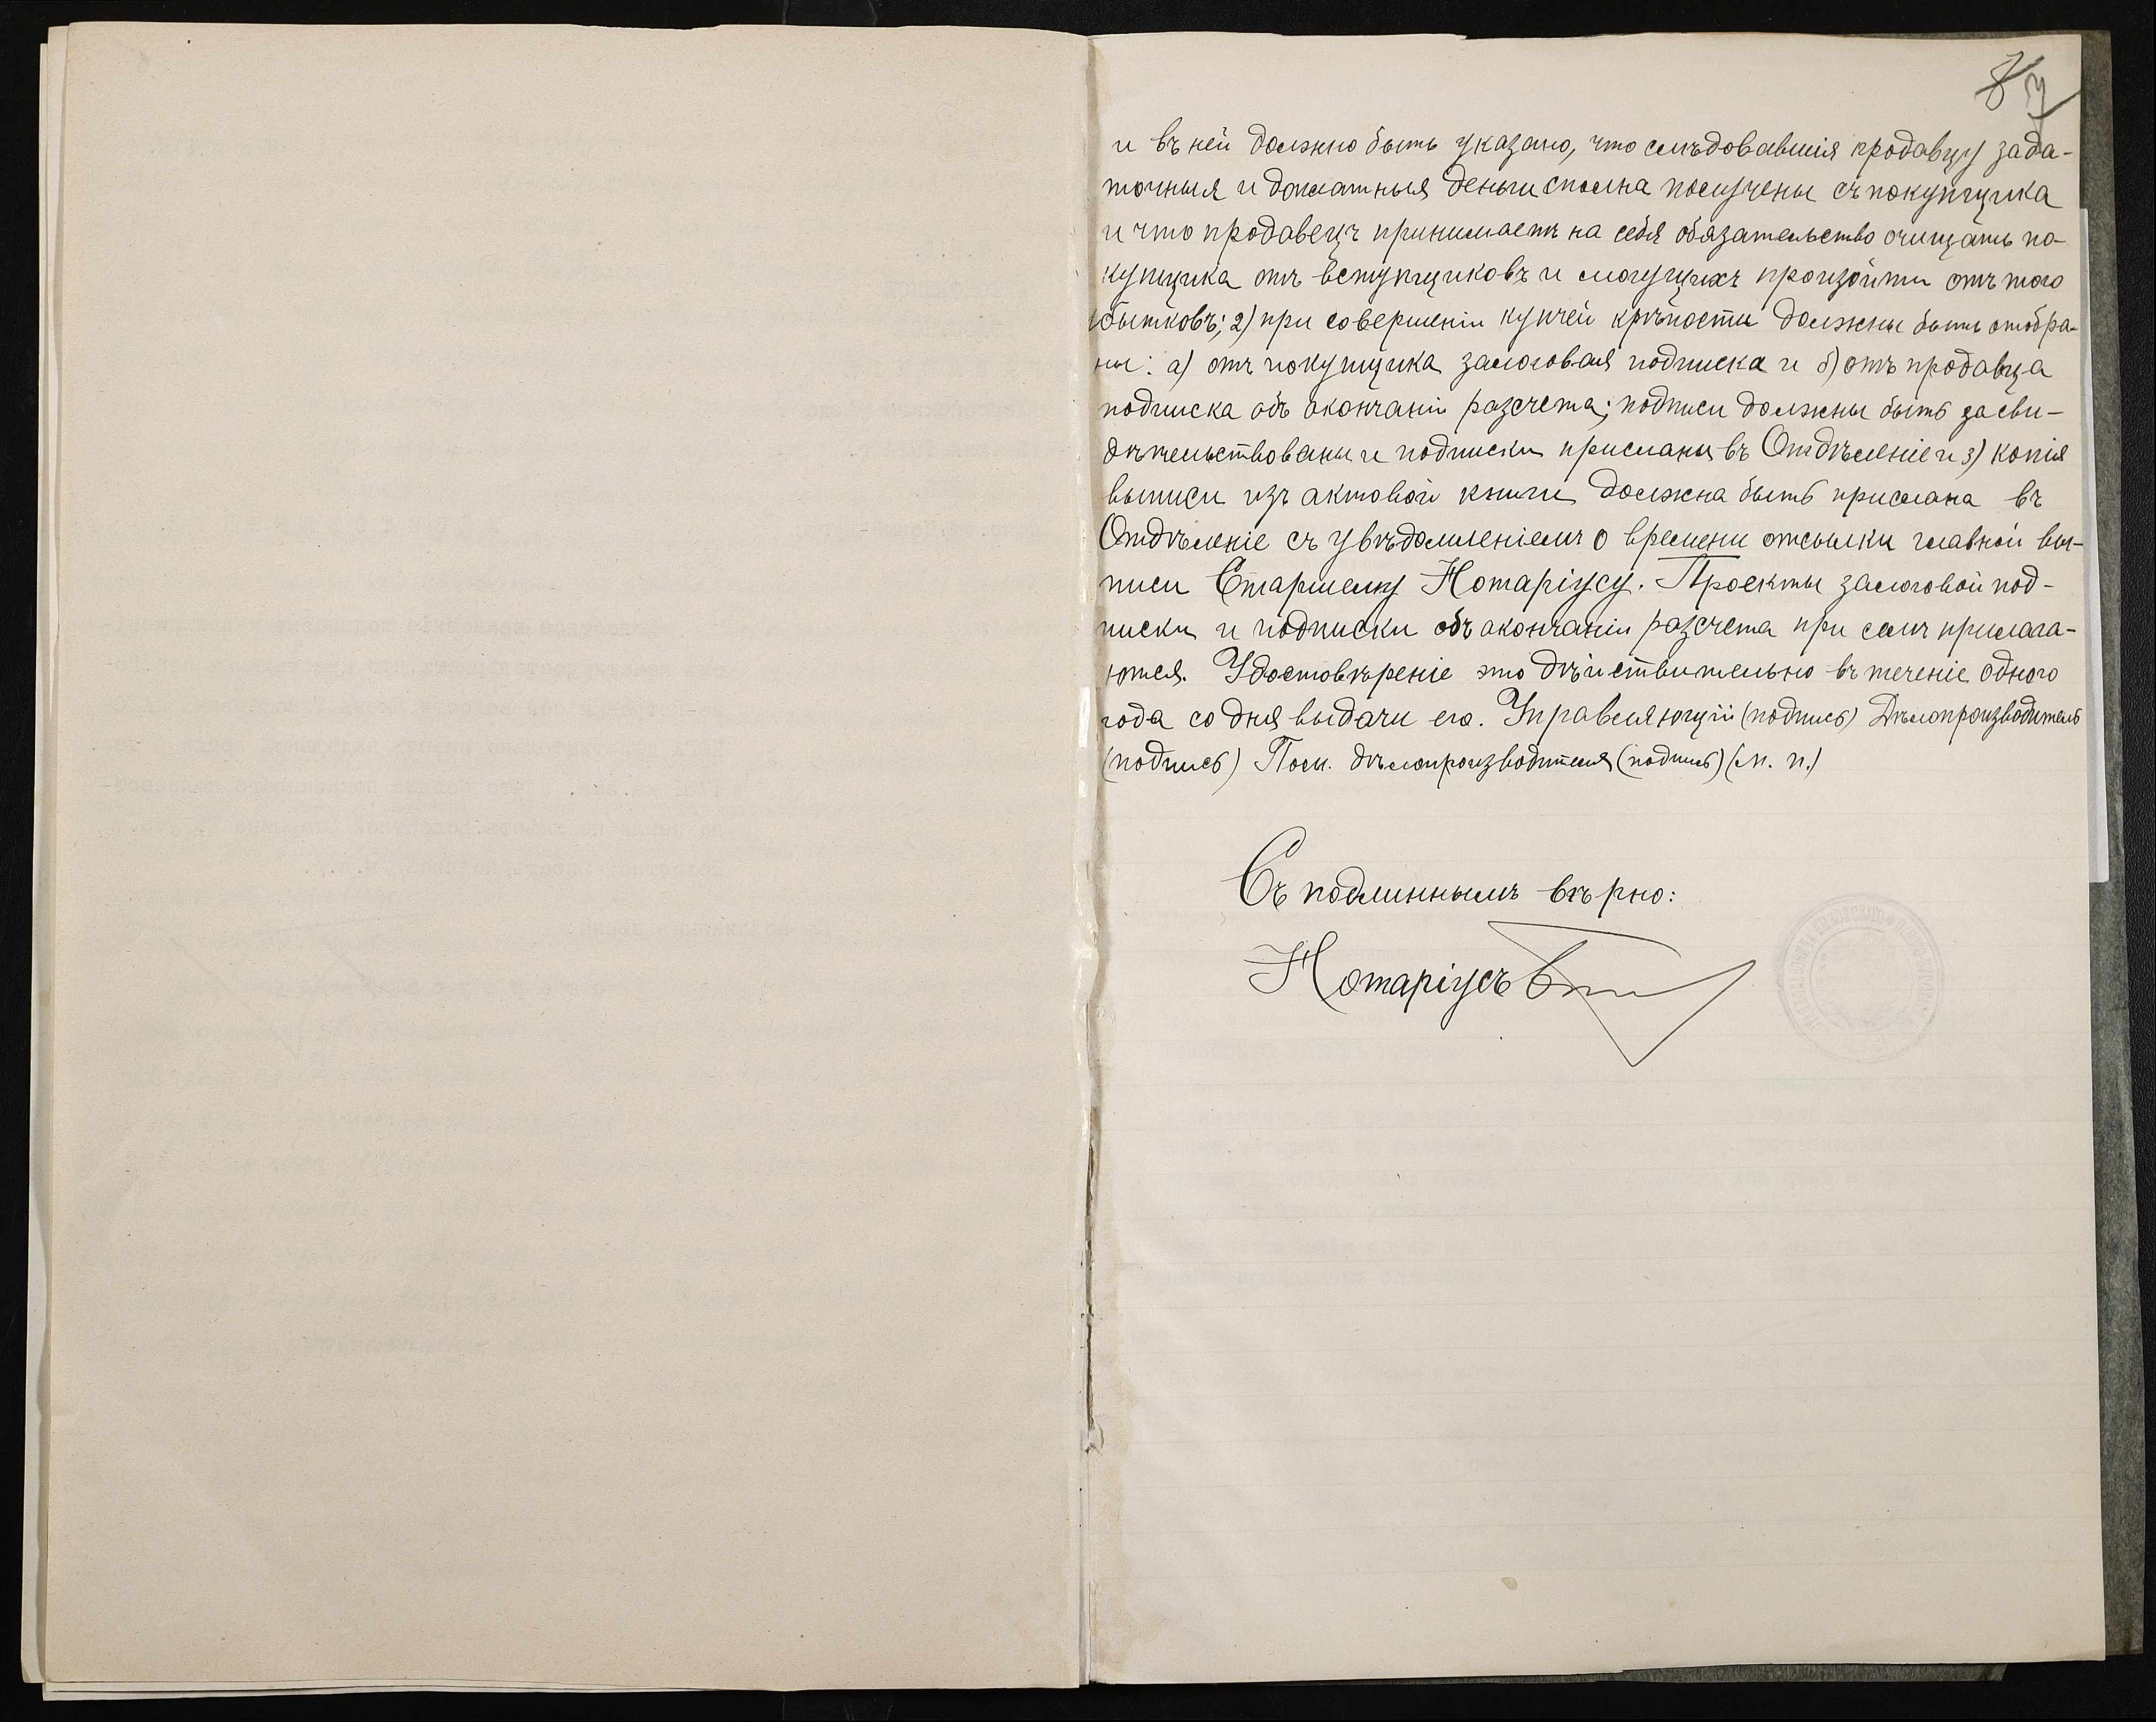 и въ ней должно быть указано, что слѣдовавшія продавцу зада-
точныя и доплатныя деньги сполна получены съ покупщика
и что продавецъ принимаетъ на себя обязательство очищать по-
купщика отъ вступщиковъ и могущихъ произойти отъ того
убытковъ; 2) при совершеніи купчей крѣпости должны быть отобра-
ны: а) отъ покупщика залоговая подписка и б) отъ продавца
подписка объ окончаніи разсчета; подписи должны быть засви-
дѣтельствованы и подписки присланы въ Отдѣленіе и 3) копія
выписи изъ актовой книги должна быть прислана въ
Отдѣленіе съ увѣдомленіемъ о времени отсылки главной вы-
писи Старшему Нотаріусу. Проекты залоговой под-
писки и подписки объ окончаніи разсчета при семъ прилага-
ются. Удостовѣреніе это дѣйствительно въ теченіе одного
года со дня выдачи его. Управляющій (подпись) Дѣлопроизводитель
(подпись) Пом. дѣлопроизводителя (подпись) (м. п.)
Съ подлиннымъ вѣрно:
Нотаріусъ